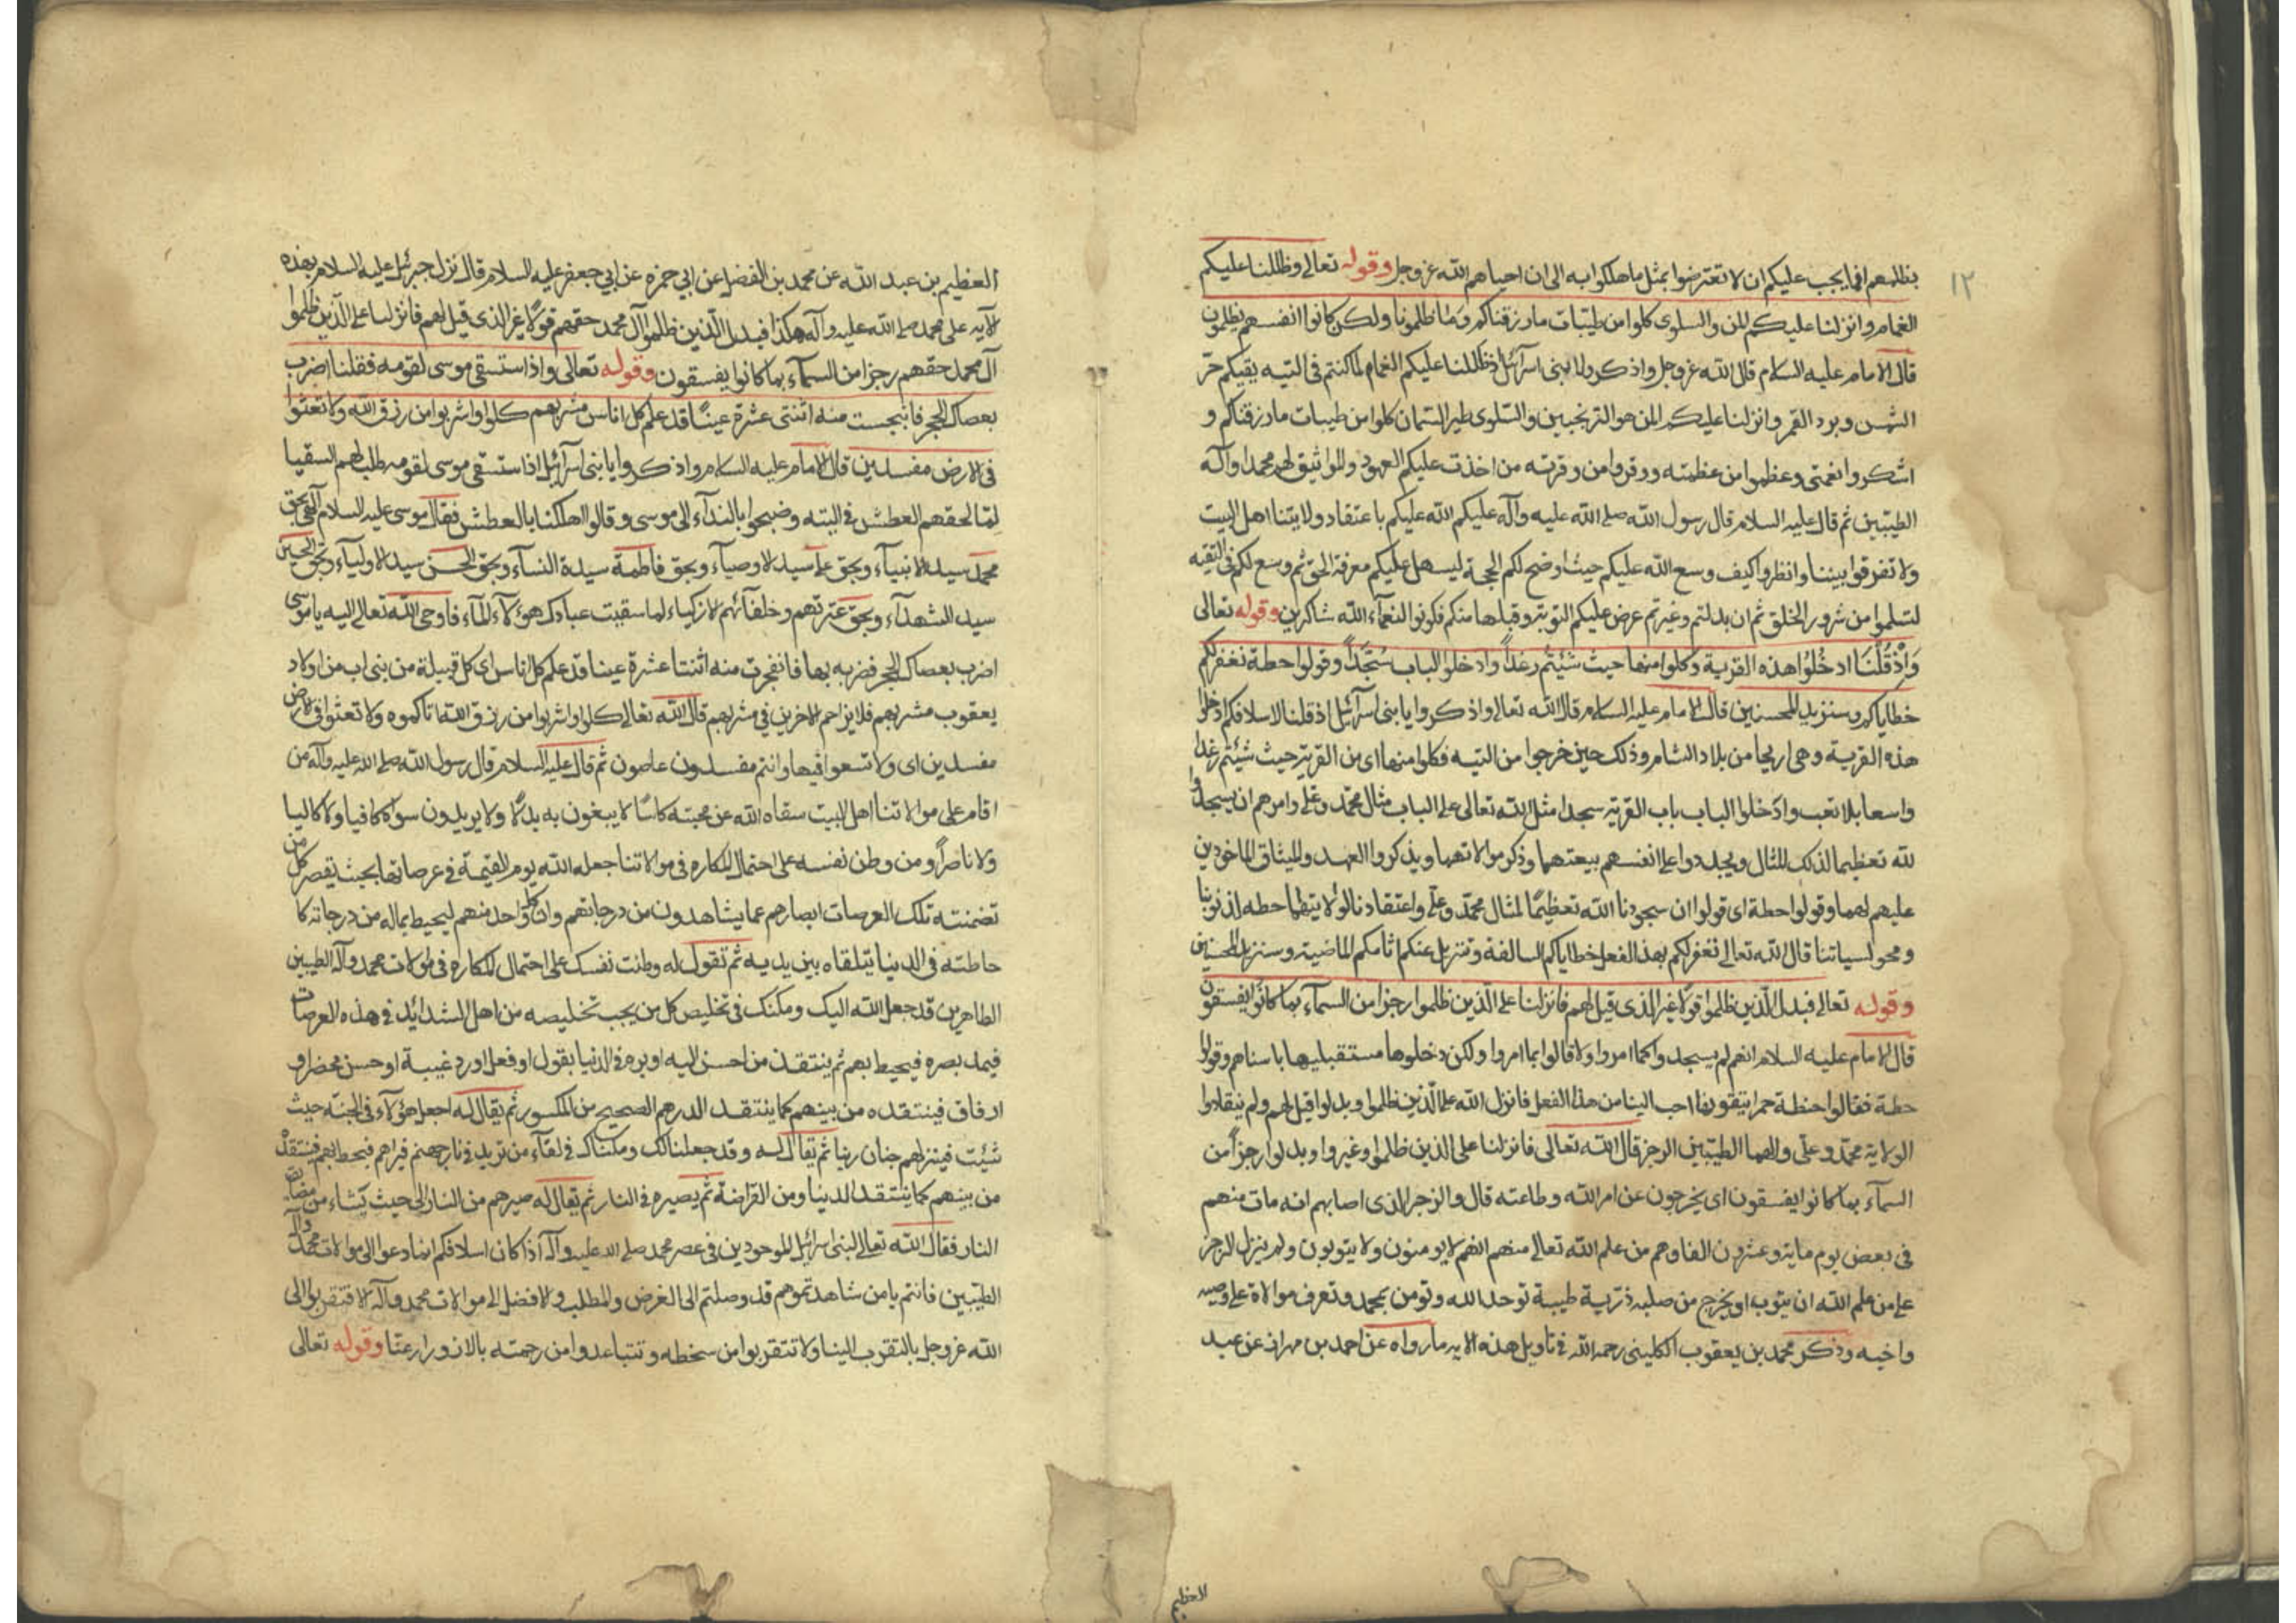 ١٢
بظلمهم افما يجب عليكم ان لا تعترضوا بمثل ما هلكوا به الى ان احياهم الله عز وجل وقوله تعالى وظللنا عليكم
الغمام وانزلنا عليكم المن والسلوى كلوا من طيبات ما رزقناكم وما ظلمونا ولكن كانوا انفسهم يظلمون
قال الامام عليه السلام قال الله عز وجل واذكروا يا بنى اسرآئيل اذ ظللنا عليكم الغمام لما كنتم فى التيه يقيكم حر
الشمس وبرد القمر وانزلنا عليكم المن هو الترنجبين والسلوى طير السمان كلوا من طيبات ما رزقناكم و
اشكروا نعمتى وعظموا من عظمته ووقروا من وقرته من اخذت عليكم العهود والمواثيق لهم محمدا وآله
الطيبين ثم قال عليه السلام قال رسول الله صلى الله عليه وآله عليكم الله عليكم باعتقاد ولايتنا اهل البيت
ولا تفرقوا بيننا وانظروا كيف وسع الله عليكم حيث اوضح لكم الحجة ليسهل عليكم معرفة الحق ثم وسع لكم فى التقيه
لتسلموا من شرور الخلق ثم ان بدلتم وغيرتم عرض عليكم التوبة وقبلها منكم فكونوا لنعمآء الله شاكرين وقوله تعالى
وَاِذْ قُلْنَا ادخُلوُا هذه القرية وكلوا منها حيث شئتم رغداً وادخلوا الباب سُجَّداً وقولوا حطة نغفر لكم
خطاياكم وسنزيد المحسنين قال الامام عليه السلام قال الله تعالى واذكروا يا بنى اسرآئيل اذ قلنا لاسلافكم ادخلوا
هذه القرية وهى اريحا من بلاد الشام وذلك حين خرجوا من التيه فكلوا منها اى من القرية حيث شيئتم رغدا
واسعا بلا تعب وادخلوا الباب باب القرية سجدا مثل الله تعالى على الباب مثال محمد وعلى وامرهم ان يسجدوا
لله تعظيما لذلك المثال ويجددوا على انفسهم بيعتهما وذكر موالاتهما ويذكروا العهد والميثاق الماخوذين
عليهم لهما وقولوا حطة اى قولوا ان سجودنا لله تعظيمًا لمثال محمد وعلى واعتقادنا لولايتهما حطه لذنوبنا
ومحو لسياتنا قال الله تعالى نغفر لكم بهذا الفعل خطاياكم السالفة ونزيل عنكم اثامكم الماضية وسنزيد المحسنين
وقوله تعالى فبدل الذين ظلموا قولا غير الذى قيل لهم فانزلنا على الذين ظلموا رجزا من السمآء بما كانُوا يفسقون
قال الامام عليه السلام انهم لم يسجدوا كما امروا ولا قالوا بما امروا ولكن دخلوها مستقبليها باستاهم وقولوا
حطة فقالوا حنطة حمرا يتقونها احب الينا من هذا الفعل فانزل الله على الذين ظلموا وبدلوا قيل لهم ولم ينقادوا
الولاية محمد وعلى والهما الطيبين الرجز قال الله تعالى فانزلنا على الذين ظلموا وغيروا وبدلوا رجزاً من
السمآء بما كانوا يفسقون اى يخرجون عن امر الله وطاعته قال والزجر الذى اصابهم انه مات منهم
فى بعض يوم ماية وعشرون الفا وهم من علم الله تعالى منهم انهم لا يومنون ولا يتوبون ولم ينزل الرجز
على من علم الله ان يتوب او يخرج من صلبه ذرية طيبة توحد الله وتومن بمحمد وتعرف موالاة على وصيه
واخيه وذكر محمد بن يعقوب الكلينى رحمه الله فى تاويل هذه الايه ما رواه عن احمد بن مهران عن عبد
العظيم
العظيم بن عبد الله عن محمد بن الفضيل عن ابي حمزه عن ابي جعفر عليه السلام قال نزل جبرئيل عليه السلام بهذه
الآيه على محمد صلى الله عليه وآله هكذا فبدل الذين ظلموا آل محمد حقهم قولًا غير الذى قيل لهم فانزلنا على الذين ظلموا
آل محمد حقهم رجزا من السمآء بما كانوا يفسقون وقوله تعالى واذا ستسقى موسى لقومه فقلنا اضرب
بعصاك الحجر فانبجست منه اثنتى عشرة عينًا قد علم كل اناس مشربهم كلوا واشربوا من رزق الله ولا تعثوا
فى الارض مفسدين قال الامام عليه السلام واذكروا يا بنى اسرآئيل اذا ستسقى موسى لقومه طلب لهم السقيا
لمّا لحقهم العطش فى التيه وضجوا بالندآء الى موسى وقالوا اهلكنا بالعطش فقال موسى عليه السلام آلهى بحق
محمد سيد الانبيآء وبحق على سيد الاوصيآء وبحق فاطمة سيدة النسآء وبحق الحسن سيد الاوليآء وبحق الحسين
سيد الشهدآء وبحق عترتهم وخلفآئهم الازكياء لما سقيت عبادك هؤلآء المآء فاوحى الله تعالى اليه يا موسى
اضرب بعصاك الحجر فضربه بها فانفجرت منه اثنتا عشرة عينا قد علم كل اناس اى كل قبيلة من بنى اب من اولاد
يعقوب مشربهم فلا يزاحم الاخرين فى مشربهم قال الله تعالى كلوا واشربوا من رزق الله اتاكموه ولا تعثوا فى الارض
مفسدين اى ولا تسعوا فيها وانتم مفسدون عاصون ثم قال عليه السلام قال رسول الله صلى الله عليه وآله من
اقام على موالاتنا اهل البيت سقاه الله عن محبته كاسًا لا يبغون به بدلًا ولا يريدون سواه كافيا ولا كاليا
ولا ناصراً ومن وطن نفسه على احتمال المكاره فى موالاتنا جعله الله يوم القيمة فى عرصاتها بحيث يقصر كل من
تضمنته تلك العرصات ابصارهم عما يشاهدون من درجاتهم وان كل واحد منهم ليحيط بماله من درجاته كا
حاطته فى الدنيا يتلقاه بين يديه ثم تقول له وطنت نفسك على احتمال المكاره فى موالات محمد وآله الطيبين
الطاهرين قد جعل الله اليك ومكنك فى تخليص كل من يجب تخليصه من اهل الشدائد فى هذه العرصات
فيمد بصره فيحيط بهم ثم ينتقد من احسن اليه او بره فى الدنيا بقول او فعل او رد غيبة او حسن محضر او
ارفاق فينتقده من بينهم كما ينتقد الدرهم الصحيح من المكسور ثم يقال له اجعل هؤلآء فى الجنة حيث
شئت فينزلهم جنان ربنا ثم يقال له وقد جعلنا لك ومكناك فى لقآء من تريد فى نار جهنم فيراهم فيحيط بهم فينتقد
من بينهم كما ينتقد الدينا ومن القراضة ثم يصيره فى النار ثم يقال له صيرهم من النار الى حيث يشاء من مضايق
النار فقال الله تعالى لبنى اسرائيل الموجودين فى عصر محمد صلى الله عليه وآله اذا كان اسلافكم انما دعوا الى موالات محمد وآله
الطيبين فانتم يا من شاهدتموهم قد وصلتم الى الغرض والمطلب والافضل الى موالات محمد وآله لا فتقربوا الى
الله عز وجل بالتقرب الينا ولا تتقربوا من سخطه وتتباعدوا من رحمته بالازورار عنا وقوله تعالى